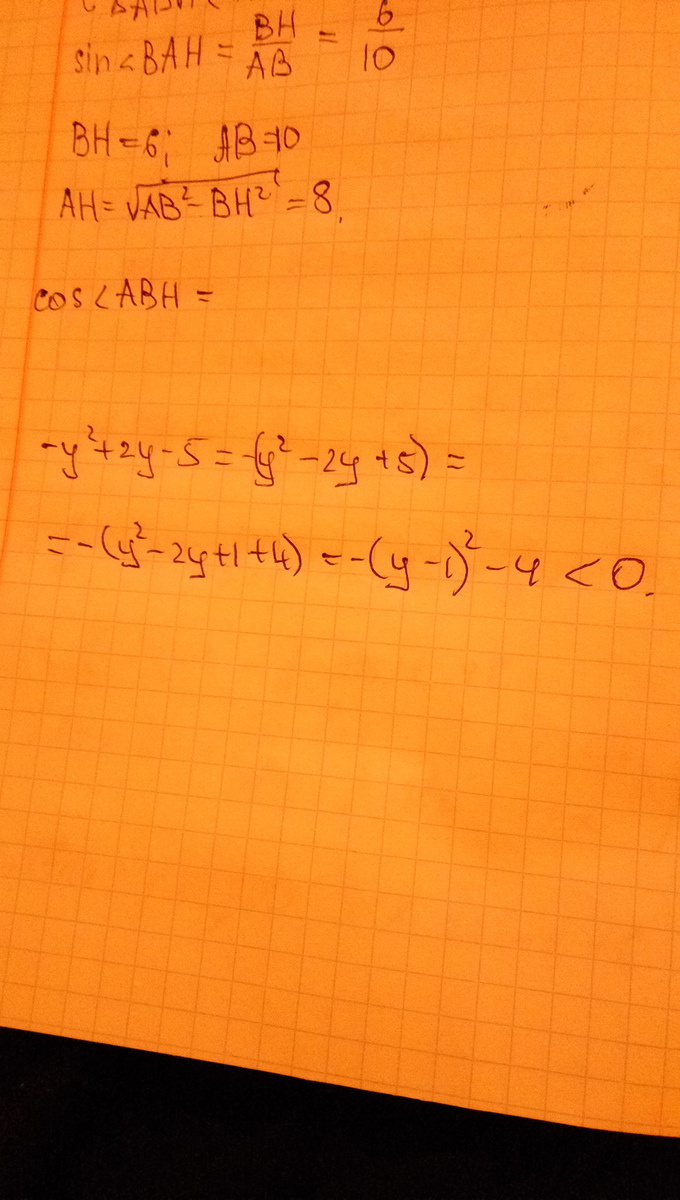 sin<BAH = BH/AB = 6/10
BH=6; AB=10
AH=√AB²-BH² = 8.
cos<ABH =
-y²+2y-5 = -(y²-2y+5) =
= -(y²-2y+1+4) = -(y-1)²-4 < 0.